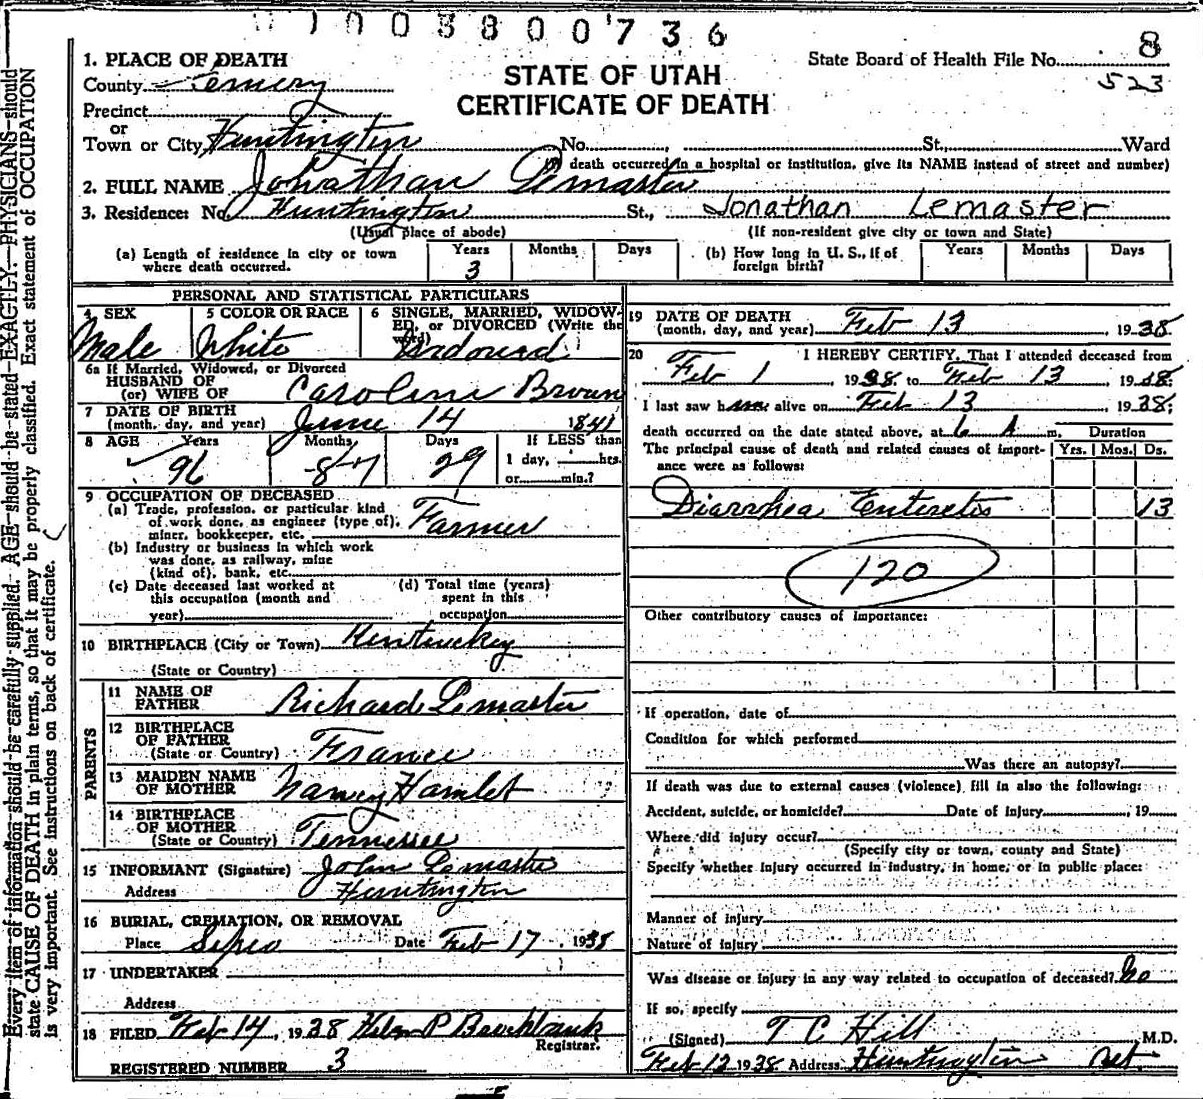 1003800736
1. PLACE OF DEATH
County Emery
Precinct
or
Town or City Huntington No. , St., Ward
STATE OF UTAH
CERTIFICATE OF DEATH
State Board of Health File No. 8
523
death occurred in a hospital or institution, give its NAME instead of street and number)
2. FULL NAME Johathan Lemaster
3. Residence: No. Huntington St., Jonathan Lemaster
(Usual place of abode) (If non-resident give city or town and State)
(a) Length of residence in city or town where death occurred. Years 3 Months Days
(b) How long in U. S., if of foreign birth? Years Months Days
PERSONAL AND STATISTICAL PARTICULARS
4 SEX Male
5 COLOR OR RACE White
6 SINGLE, MARRIED, WIDOW-
ED, or DIVORCED (Write the
word)
6a If Married, Widowed, or Divorced
HUSBAND OF
(or) WIFE OF Caroline Brown
7 DATE OF BIRTH
(month, day, and year) June 14 1841
8 AGE Years 96 Months 8-7 Days 29
If LESS than
1 day, hrs.
or min.?
9 OCCUPATION OF DECEASED
(a) Trade, profession, or particular kind
of work done, as engineer (type of),
miner, bookkeeper, etc. Farmer
(b) Industry or business in which work
was done, as railway, mine
(kind of), bank, etc.
(c) Date deceased last worked at
this occupation (month and
year)
(d) Total time (years)
spent in this
occupation
10 BIRTHPLACE (City or Town) Kentuckey
(State or Country)
PARENTS
11 NAME OF
FATHER Richard Lemaster
12 BIRTHPLACE
OF FATHER
(State or Country) France
13 MAIDEN NAME
OF MOTHER Nancy Hamlet
14 BIRTHPLACE
OF MOTHER
(State or Country) Tennessee
15 INFORMANT (Signature) John Lemaster
Address Huntington
16 BURIAL, CREMATION, OR REMOVAL
Place Date Feb 17, 1938
17 UNDERTAKER
Address
18 FILED Feb 14, 1938
Registrar.
REGISTERED NUMBER 3
19 DATE OF DEATH
(month, day, and year) Feb 13, 1938
20 I HEREBY CERTIFY, That I attended deceased from
Feb 1, 1938 to Feb 13, 1938;
I last saw him alive on Feb 13, 1938;
death occurred on the date stated above, at 6 A m.
The principal cause of death and related causes of import-
ance were as follows:
Duration
Yrs. Mos. Ds.
Diarrhea Enteretis 13
120
Other contributory causes of importance:
If operation, date of
Condition for which performed
Was there an autopsy?
If death was due to external causes (violence) fill in also the following:
Accident, suicide, or homicide? Date of injury , 19
Where did injury occur?
(Specify city or town, county and State)
Specify whether injury occurred in industry, in home, or in public place:
Manner of injury
Nature of injury
Was disease or injury in any way related to occupation of deceased? No
If so, specify
(Signed) T C Hill M.D.
Feb 12 1938 Address Huntington Ut.
Every item of information should be carefully supplied. AGE should be stated EXACTLY. PHYSICIANS should
state CAUSE OF DEATH in plain terms, so that it may be properly classified. Exact statement of OCCUPATION
is very important. See instructions on back of certificate.